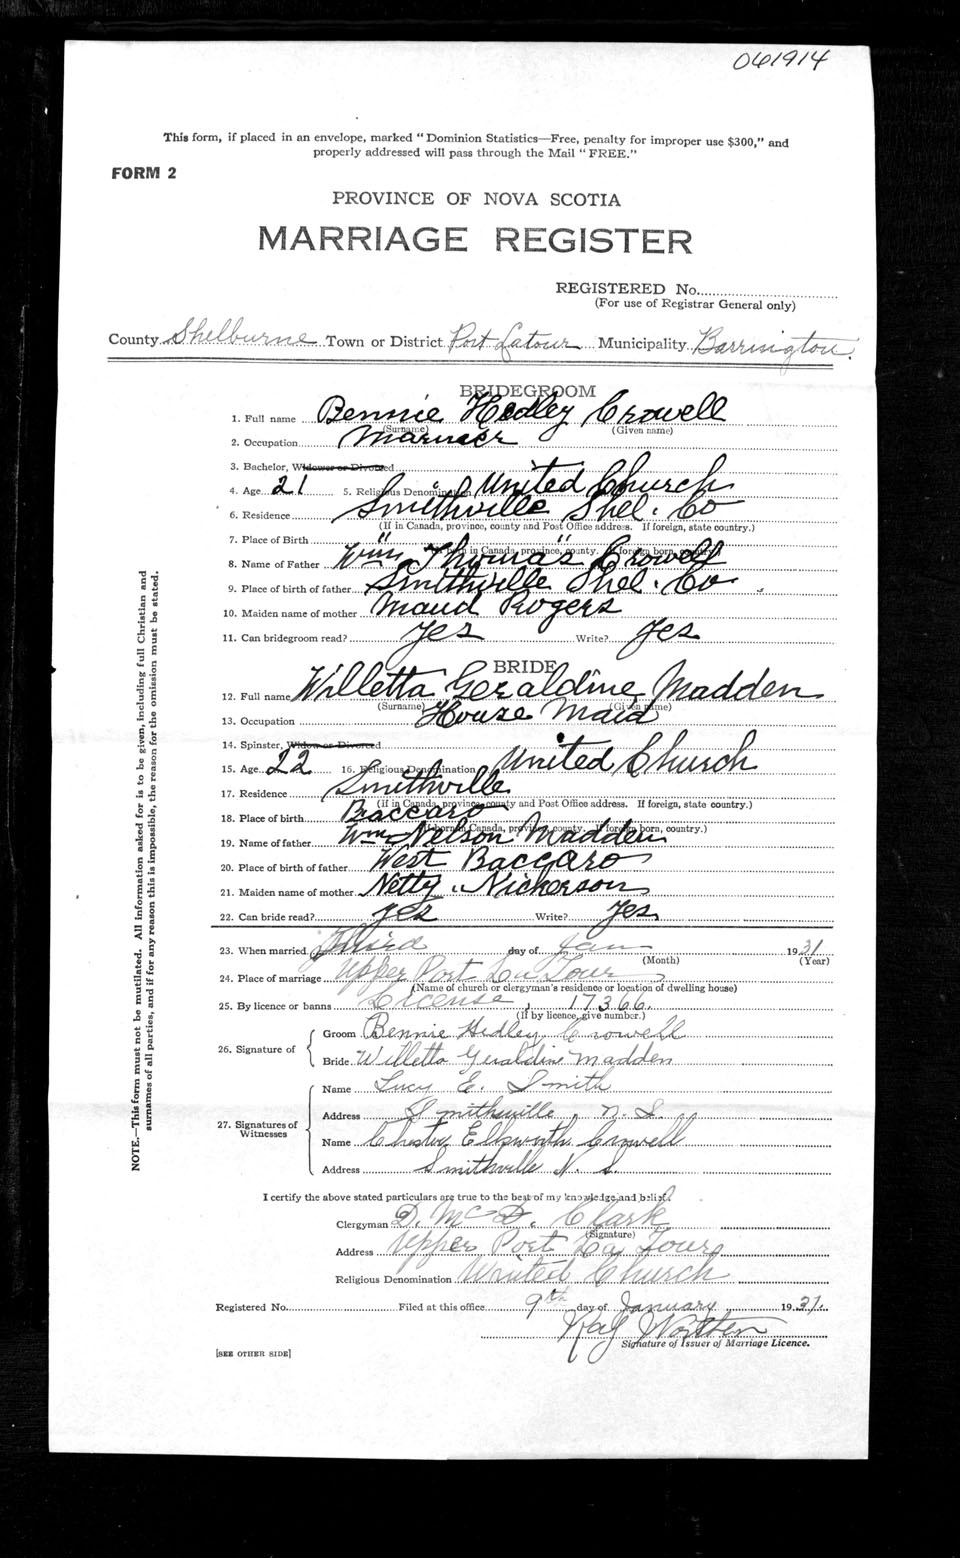 061914
This form, if placed in an envelope, marked "Dominion Statistics—Free, penalty for improper use $300," and
properly addressed will pass through the Mail "FREE."
FORM 2
PROVINCE OF NOVA SCOTIA
MARRIAGE REGISTER
REGISTERED No.
(For use of Registrar General only)
County Shelburne Town or District Port Latour Municipality Barrington.
BRIDEGROOM
1. Full name Bennie Hedley Crowell
(Surname) (Given name)
2. Occupation Mariner
3. Bachelor, Widower or Divorced
4. Age 21 5. Religious Denomination United Church
6. Residence Smithville Shel. Co
(If in Canada, province, county and Post Office address. If foreign, state country.)
7. Place of Birth " "
(If born in Canada, province, county. If foreign born, country.)
8. Name of Father Wm Thomas Crowell
9. Place of birth of father Smithville Shel. Co.
10. Maiden name of mother Maud Rogers
11. Can bridegroom read? yes Write? yes
BRIDE
12. Full name Willetta Geraldine Madden
(Surname) (Given name)
13. Occupation House Maid
14. Spinster, Widow or Divorced
15. Age 22 16. Religious Denomination United Church
17. Residence Smithville
(if in Canada, province, county and Post Office address. If foreign, state country.)
18. Place of birth Baccaro
(If born in Canada, province, county. If foreign born, country.)
19. Name of father Wm Nelson Madden
20. Place of birth of father West Baccaro
21. Maiden name of mother Netty Nickerson
22. Can bride read? yes Write? yes
23. When married Third day of Jan 1931
(Month) (Year)
24. Place of marriage Upper Port La Tour
(Name of church or clergyman's residence or location of dwelling house)
25. By licence or banns License, 17366.
(If by licence, give number.)
26. Signature of
Groom Bennie Hedley Crowell
Bride Willetta Geraldine Madden
27. Signatures of Witnesses
Name Lucy E. Smith
Address Smithville, N. S.
Name Chester Ellsworth Crowell
Address Smithville N. S.
I certify the above stated particulars are true to the best of my knowledge and belief.
Clergyman D. McD. Clark
(Signature)
Address Upper Port La Tour
Religious Denomination United Church
Registered No. Filed at this office 9th day of January 1931.
Signature of Issuer of Marriage Licence.
[SEE OTHER SIDE]
NOTE.—This form must not be mutilated. All information asked for is to be given, including full Christian and
surnames of all parties, and if for any reason this is impossible, the reason for the omission must be stated.